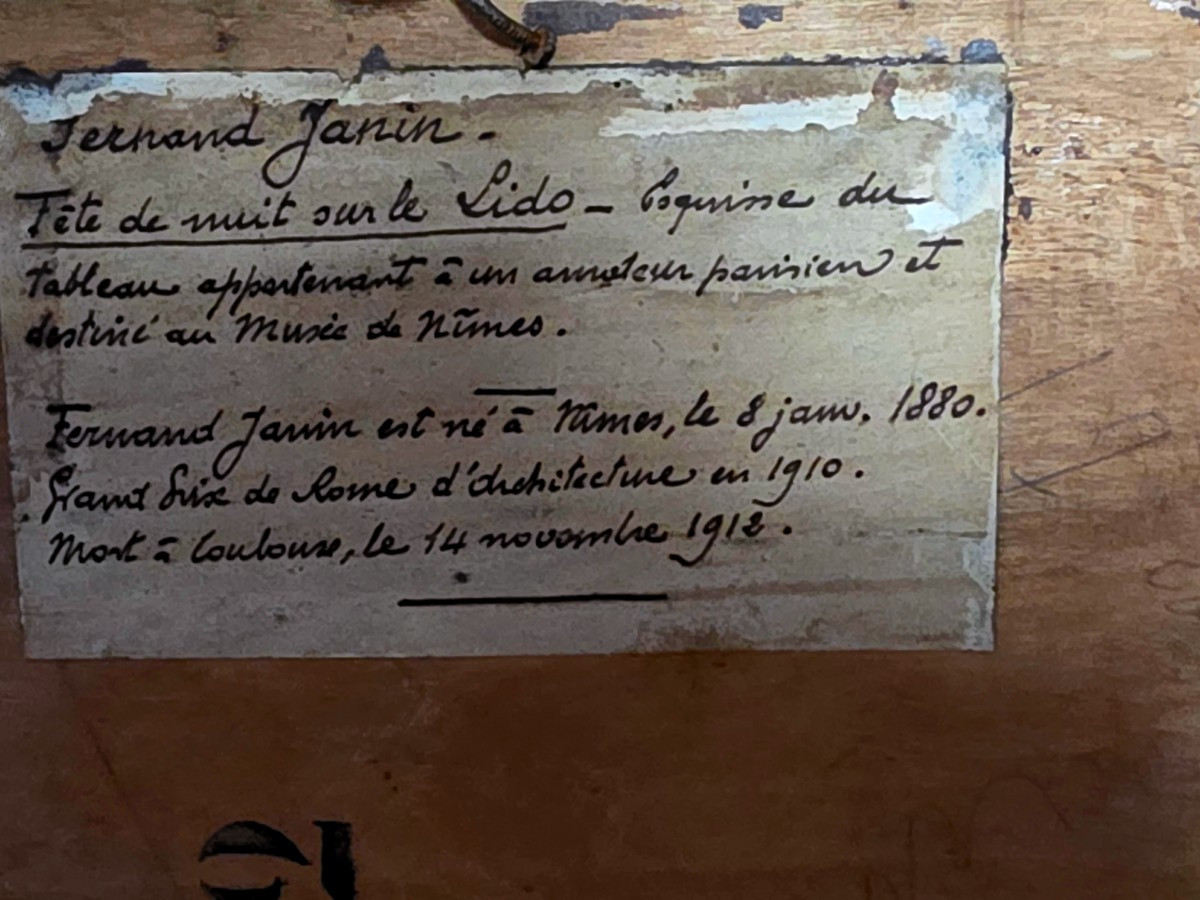 Fernand Janin -
Fête de nuit sur le Lido - Esquisse du
tableau appartenant à un amateur parisien et
destiné au Musée de Nîmes.
Fernand Janin est né à Nîmes, le 8 janv. 1880.
Grand Prix de Rome d'Architecture en 1910.
Mort à Toulouse, le 14 novembre 1912.